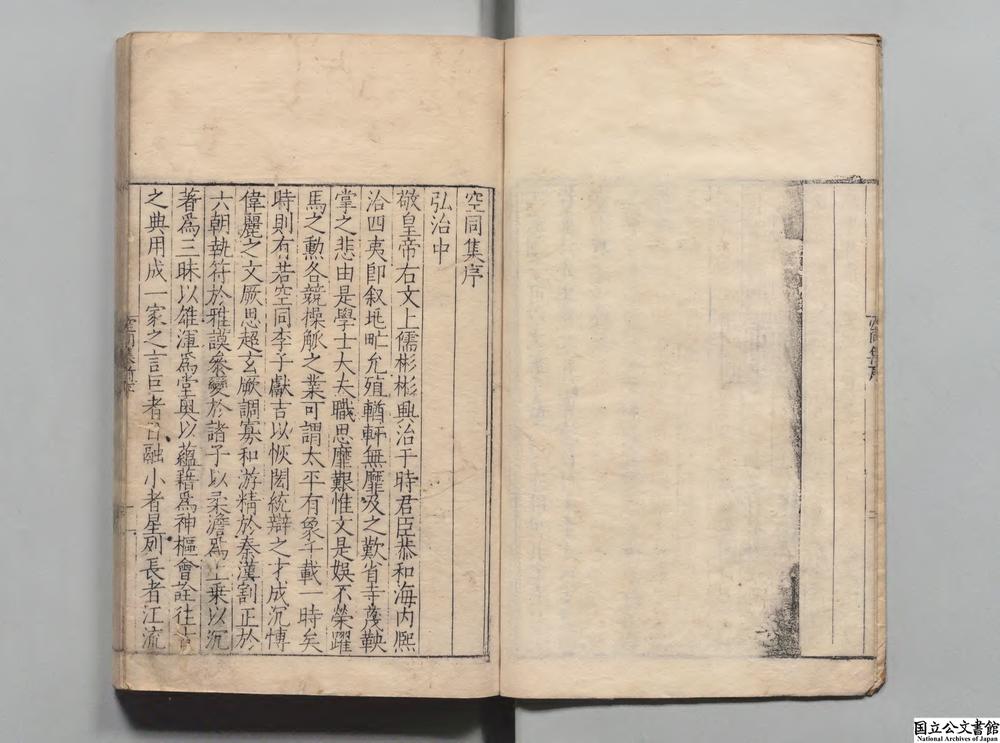 空同集序
弘治中
敬皇帝右文上儒彬彬興治于時君臣恭和海内熈
洽四夷即叙兆甿允殖輶軒無靡及之歎省寺蔑鞅
掌之悲由是學士大夫職思靡艱惟文是娱不榮躍
馬之勲各競操觚之業可謂太平有象千載一時矣
時則有若空同李子獻吉以恢閎統辯之才成沉博
偉麗之文厥思超玄厥調寡和游精於秦漢割正於
六朝執符於雅謨參變於諸子以柔澹為上乗以沉
著為三昧以雄渾為堂奥以蘊藉為神樞會詮往古
之典用成一家之言巨者日融小者星列長者江流
空同集序
国立公文書館
National Archives of Japan